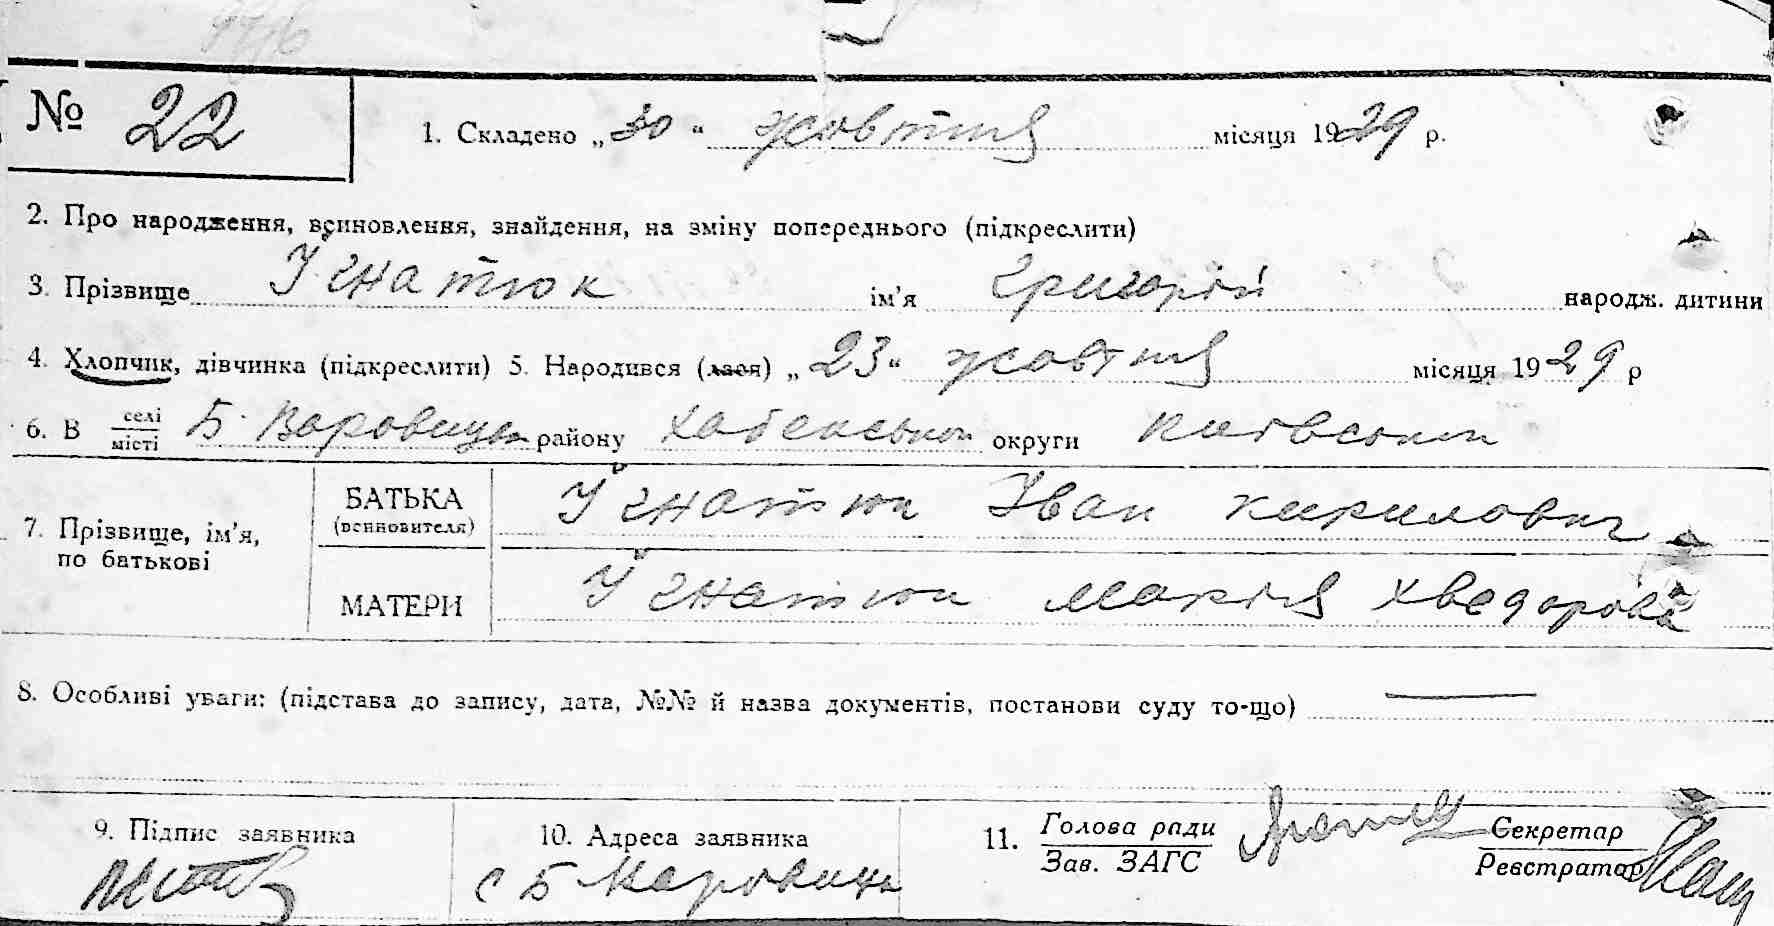 № 22
1. Складено „30“ жовтня місяця 1929 р.
2. Про народження, всиновлення, знайдення, на зміну попереднього (підкреслити)
3. Прізвище Ігнатюк ім’я Григорій народж. дитини
4. Хлопчик, дівчинка (підкреслити) 5. Народився (лася) „23“ жовтня місяця 1929 р
6. В селі/місті Б. Варовицьк району Хабенського округи Київської
7. Прізвище, ім’я, по батькові
БАТЬКА (всиновителя) Ігнатюк Іван Кирилович
МАТЕРИ Ігнатюк Марія Хведорова
8. Особливі уваги: (підстава до запису, дата, №№ й назва документів, постанови суду то-що)
9. Підпис заявника
10. Адреса заявника
с Б
11. Голова ради
Зав. ЗАГС
Секретар
Реєстратор